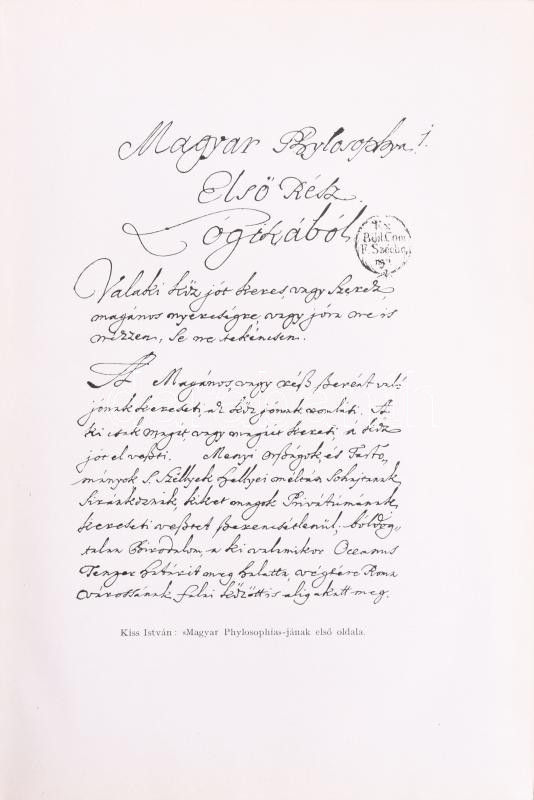 Magyar Phylosophya 1.
Első Rész
Lógikából
Ex
Bibl. Com.
F. Széche
Valaki köz jót keres, vagy szerez,
magános nyereségre, vagy jóra ne is
nézzen, se ne tekéncsen.
A Magános, vagy réß ßerént való
jónak kereseti, az köz jónak romláti. A
ki csak magát, vagy magáét kereti, á köz
jót el veßti. Menyi orßágok, és Tarto
mányok S. Széllyek hellyei méltán Sohajtanak,
Siránkoznak, kiket magok Privátumának,
kereseti veßtet ßerencsétlenül; bóldog
talan Birodalom, a ki valamikor Oceanus
Tenger határit meg halatta, végtére Roma
városának falai között is alig akatt meg.
Kiss István: «Magyar Phylosophia»-jának első oldala.